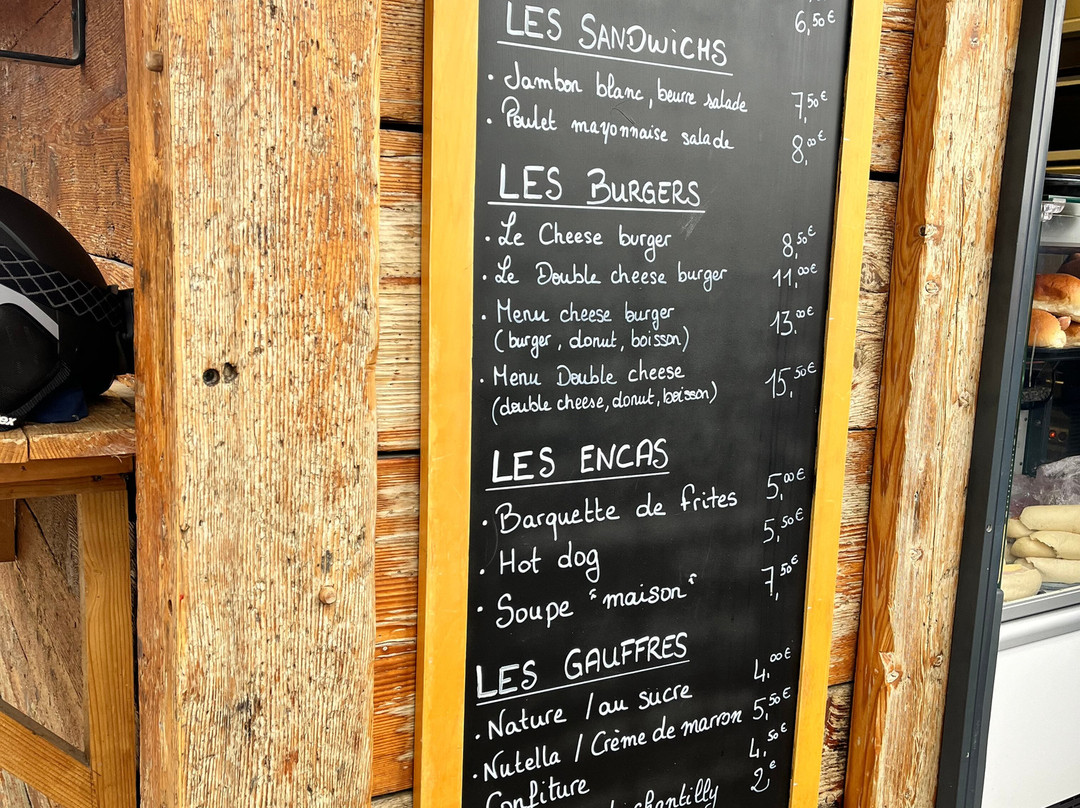 6,50€
LES SANDWICHS
• Jambon blanc, beurre salade 7,50€
• Poulet mayonnaise salade 8,00€
LES BURGERS
• Le Cheese burger 8,50€
• Le Double cheese burger 11,00€
• Menu cheese burger 13,00€
(burger, donut, boisson)
• Menu Double cheese 15,50€
(double cheese, donut, boisson)
LES ENCAS
• Barquette de frites 5,00€
• Hot dog 5,50€
• Soupe "maison" 7,50€
LES GAUFFRES
• Nature / au sucre 4,00€
• Nutella / Crème de marron 5,50€
Confiture 4,50€
chantilly 2,€